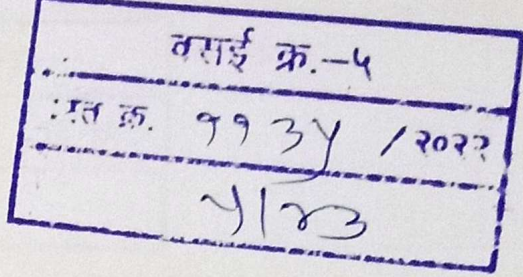 वसई क्र.-५
दस्त क्र. ११३५ /२०२२
५/४३